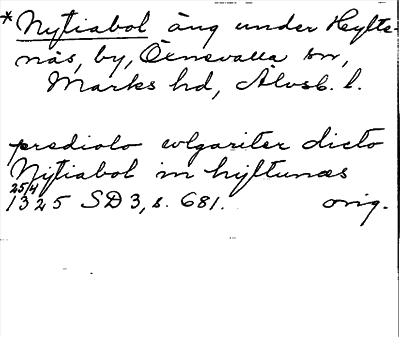 * Nytiabol äng under Heylte-
näs, by, Örnevalla sn,
Marks hd, Älvsb. l.
prediolo wlgariter dicto
Nytiabol in hyltunæs
25/4
1325 SD 3, s. 681. orig.